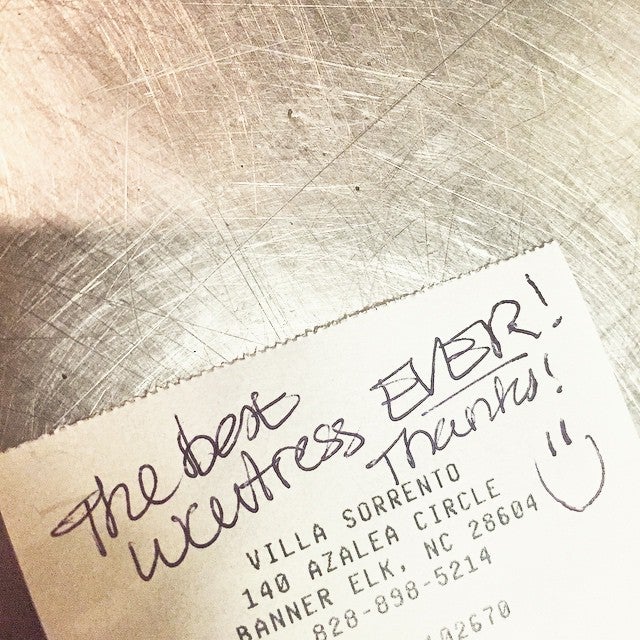 The best
waitress EVER!
Thanks!
VILLA SORRENTO
140 AZALEA CIRCLE
BANNER ELK, NC 28604
828-898-5214
02670